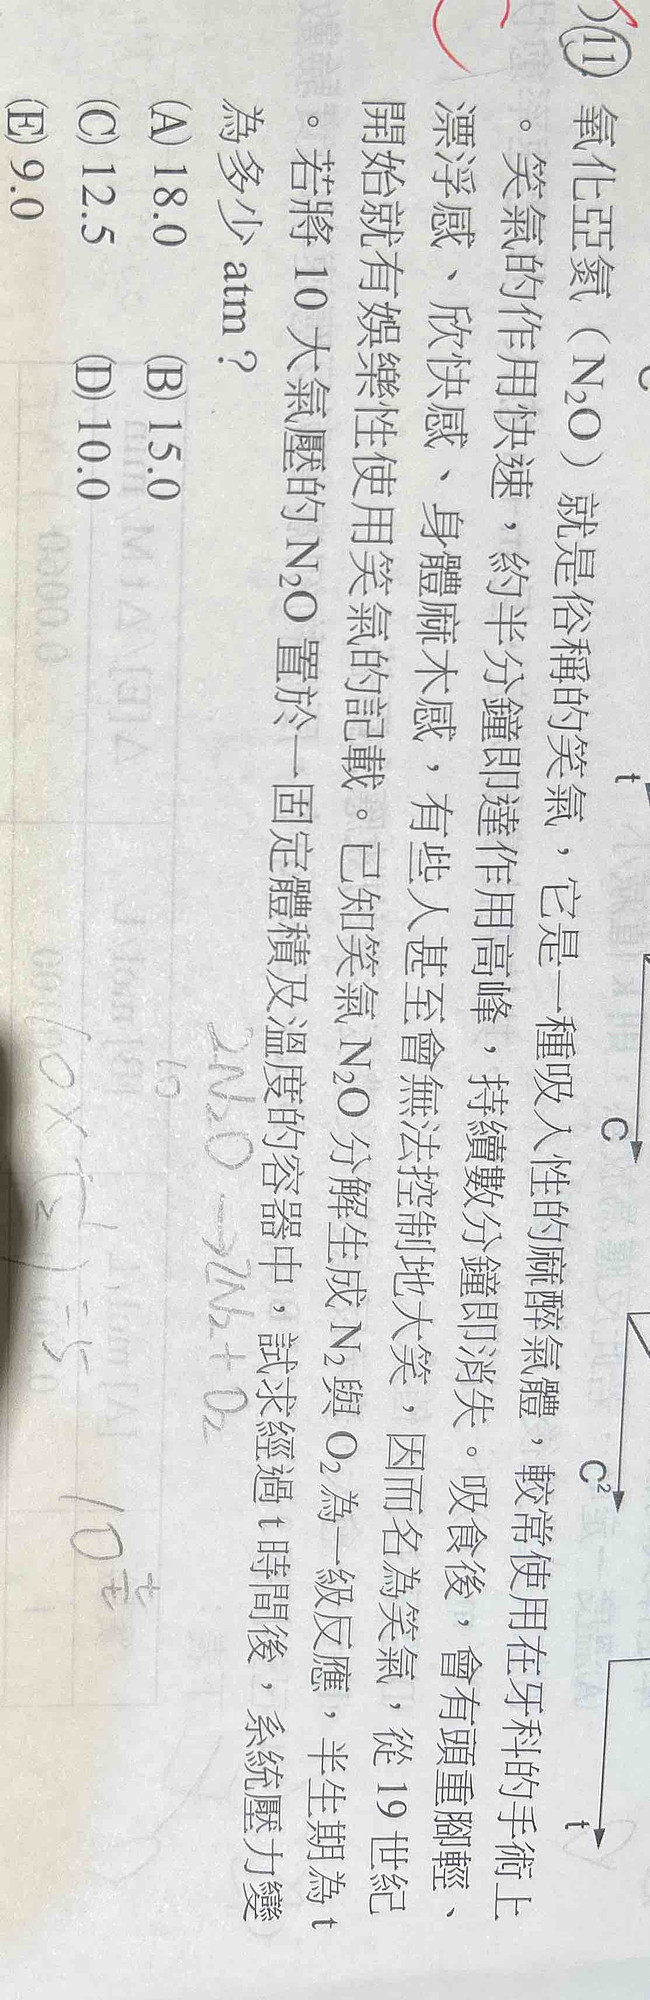 (11) 氧化亞氮（N₂O）就是俗稱的笑氣，它是一種吸入性的麻醉氣體，較常使用在牙科的手術上
。笑氣的作用快速，約半分鐘即達作用高峰，持續數分鐘即消失。吸食後，會有頭重腳輕、
漂浮感、欣快感、身體麻木感，有些人甚至會無法控制地大笑，因而名為笑氣，從 19 世紀
開始就有娛樂性使用笑氣的記載。已知笑氣 N₂O 分解生成 N₂ 與 O₂ 為一級反應，半生期為 t
。若將 10 大氣壓的 N₂O 置於一固定體積及溫度的容器中，試求經過 t 時間後，系統壓力變
為多少 atm？
(A) 18.0 (B) 15.0
(C) 12.5 (D) 10.0
(E) 9.0
2N₂O → 2N₂ + O₂
10
t
C
C²
t